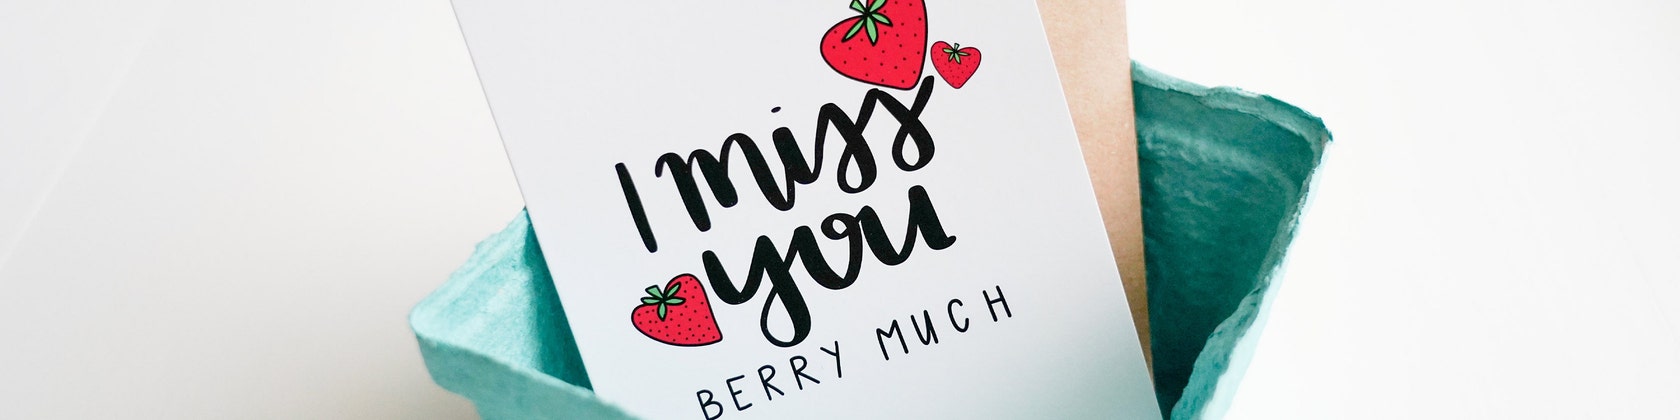 I miss
you
BERRY MUCH